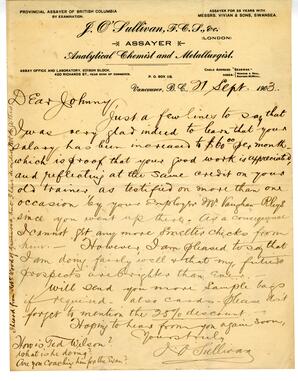 PROVINCIAL ASSAYER OF BRITISH COLUMBIA
BY EXAMINATION.
ASSAYER FOR 26 YEARS WITH
MESSRS. VIVIAN & SONS, SWANSEA.
J. O'Sullivan, F.C.S., &c.
(LONDON)
ASSAYER
Analytical Chemist and Metallurgist.
ASSAY OFFICE AND LABORATORY, EDISON BLOCK,
P. O. BOX
CABLE ADDRESS
Vancouver, B.C. 21 Sept. 1903.
Dear Johnny
Just a few lines to say that
I was very glad indeed to learn that your
salary has been increased to per month,
which is proof that your good work is appreciated
and reflecting at the same credit on your
old trainer as testified on more than one
occasion by your Employer Mr Vaughan Rhys
since you went up there. As a consequence
I cannot get any more Smelter checks from
him. However, I am pleased to say that
I am doing fairly well & that my future
prospects are brighter than ever.
I will send you more Sample bags
if required. also cards. Please don't
forget to mention the 25% discount.
Hoping to hear from you again soon,
Yours truly
J O'Sullivan
How is Ted Wilson?
What is he doing?
Are you Coaching him for the Exam?